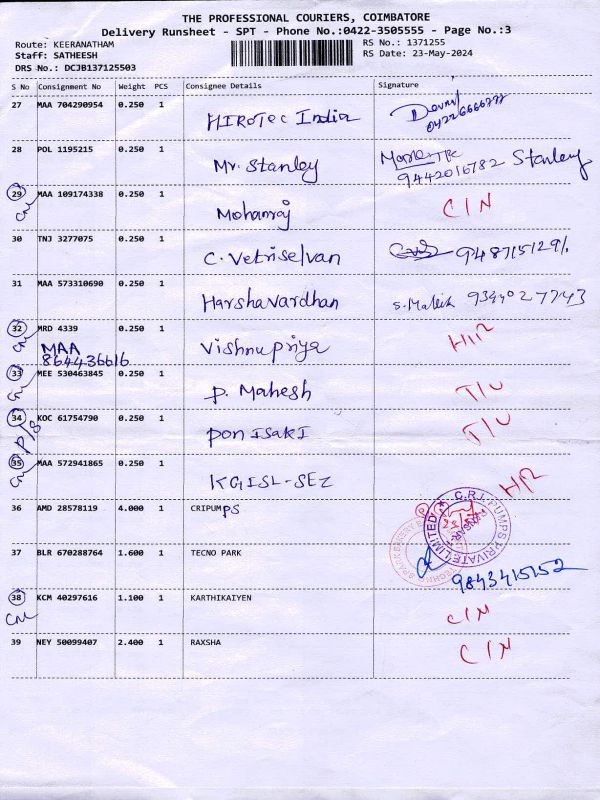 THE PROFESSIONAL COURIERS, COIMBATORE
Delivery Runsheet - SPT - Phone No.:0422-3505555 - Page No.:3
Route: KEERANATHAM RS No.: 1371255
Staff: SATHEESH RS Date: 23-May-2024
DRS No.: DCJB137125503
S No Consignment No Weight PCS Consignee Details Signature
27 MAA 704290954 0.250 1 HIROTEC India
28 POL 1195215 0.250 1 Mr. Stanley 9442016782 Stanley
29 MAA 109174338 0.250 1 Mohanraj C/N
30 TNJ 3277075 0.250 1 C. Vetriselvan
31 MAA 573310690 0.250 1 Harshavardhan
32 MRD 4339 0.250 1 Vishnupriya
MAA
864436616
33 MEE 530463845 0.250 1 P. Mahesh
34 KOC 61754790 0.250 1 Pon ISAKI
35 MAA 572941865 0.250 1 KGISL-SEZ
36 AMD 28578119 4.000 1 CRIPUMPS
C.R.I. PUMPS PRIVATE LIMITED
37 BLR 670288764 1.600 1 TECNO PARK
9843415152
38 KCM 40297616 1.100 1 KARTHIKAIYEN C/N
39 NEY 50099407 2.400 1 RAXSHA C/N